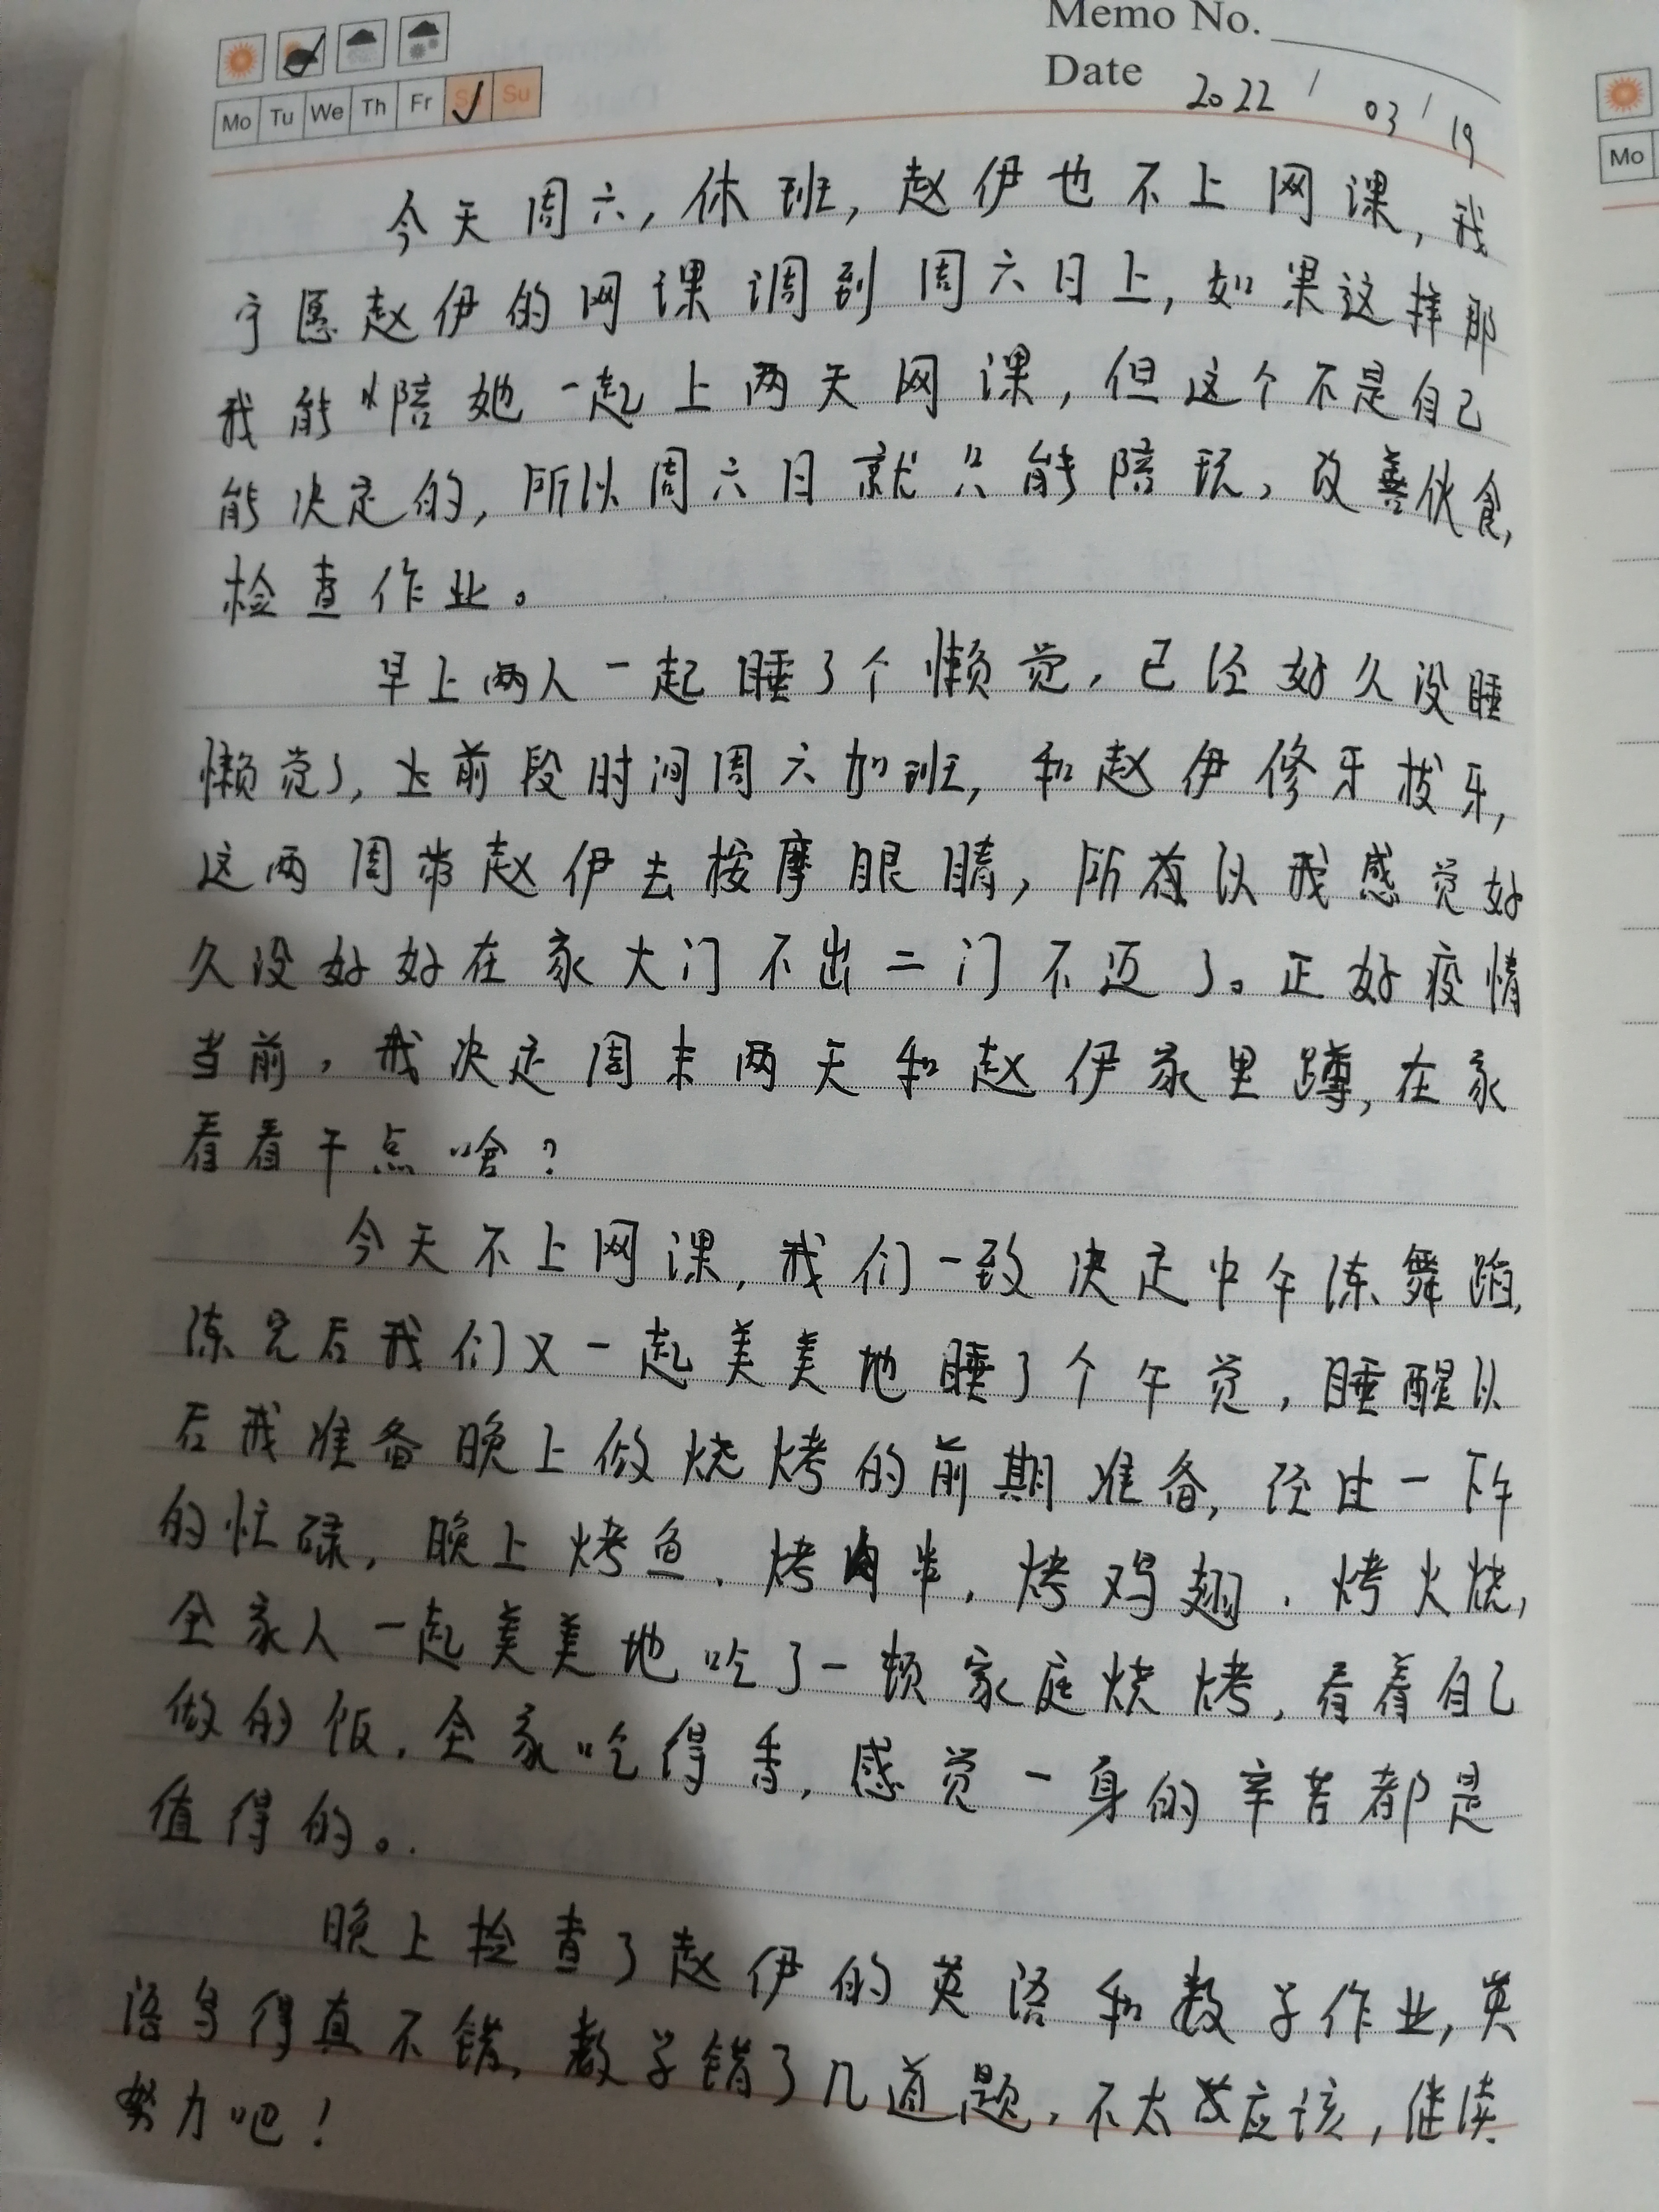 Memo No.
Mo Tu We Th Fr Sa Su
Date 2022 / 03 / 19
Mo
今天周六,休班,赵伊也不上网课,我
宁愿赵伊的网课调到周六日上,如果这样那
我能陪她一起上两天网课,但这个不是自己
能决定的,所以周六日就只能陪玩、改善伙食,
检查作业。
早上两人一起睡了个懒觉,已经好久没睡
懒觉了,前段时间周六加班,和赵伊修牙拔牙,
这两周带赵伊去按摩眼睛,所以我感觉好
久没好好在家大门不出二门不迈了。正好疫情
当前,我决定周末两天和赵伊家里蹲,在家
看看干点啥?
今天不上网课,我们一致决定中午练舞蹈,
练完后我们又一起美美地睡了个午觉,睡醒以
后我准备晚上做烧烤的前期准备,经过一下午
的忙碌,晚上烤鱼、烤肉串,烤鸡翅、烤火烧,
全家人一起美美地吃了一顿家庭烧烤,看着自己
做的饭,全家吃得香,感觉一身的辛苦都是
值得的。
晚上检查了赵伊的英语和数学作业,英
语写得真不错,数学错了几道题,不太应该,继续
努力吧!